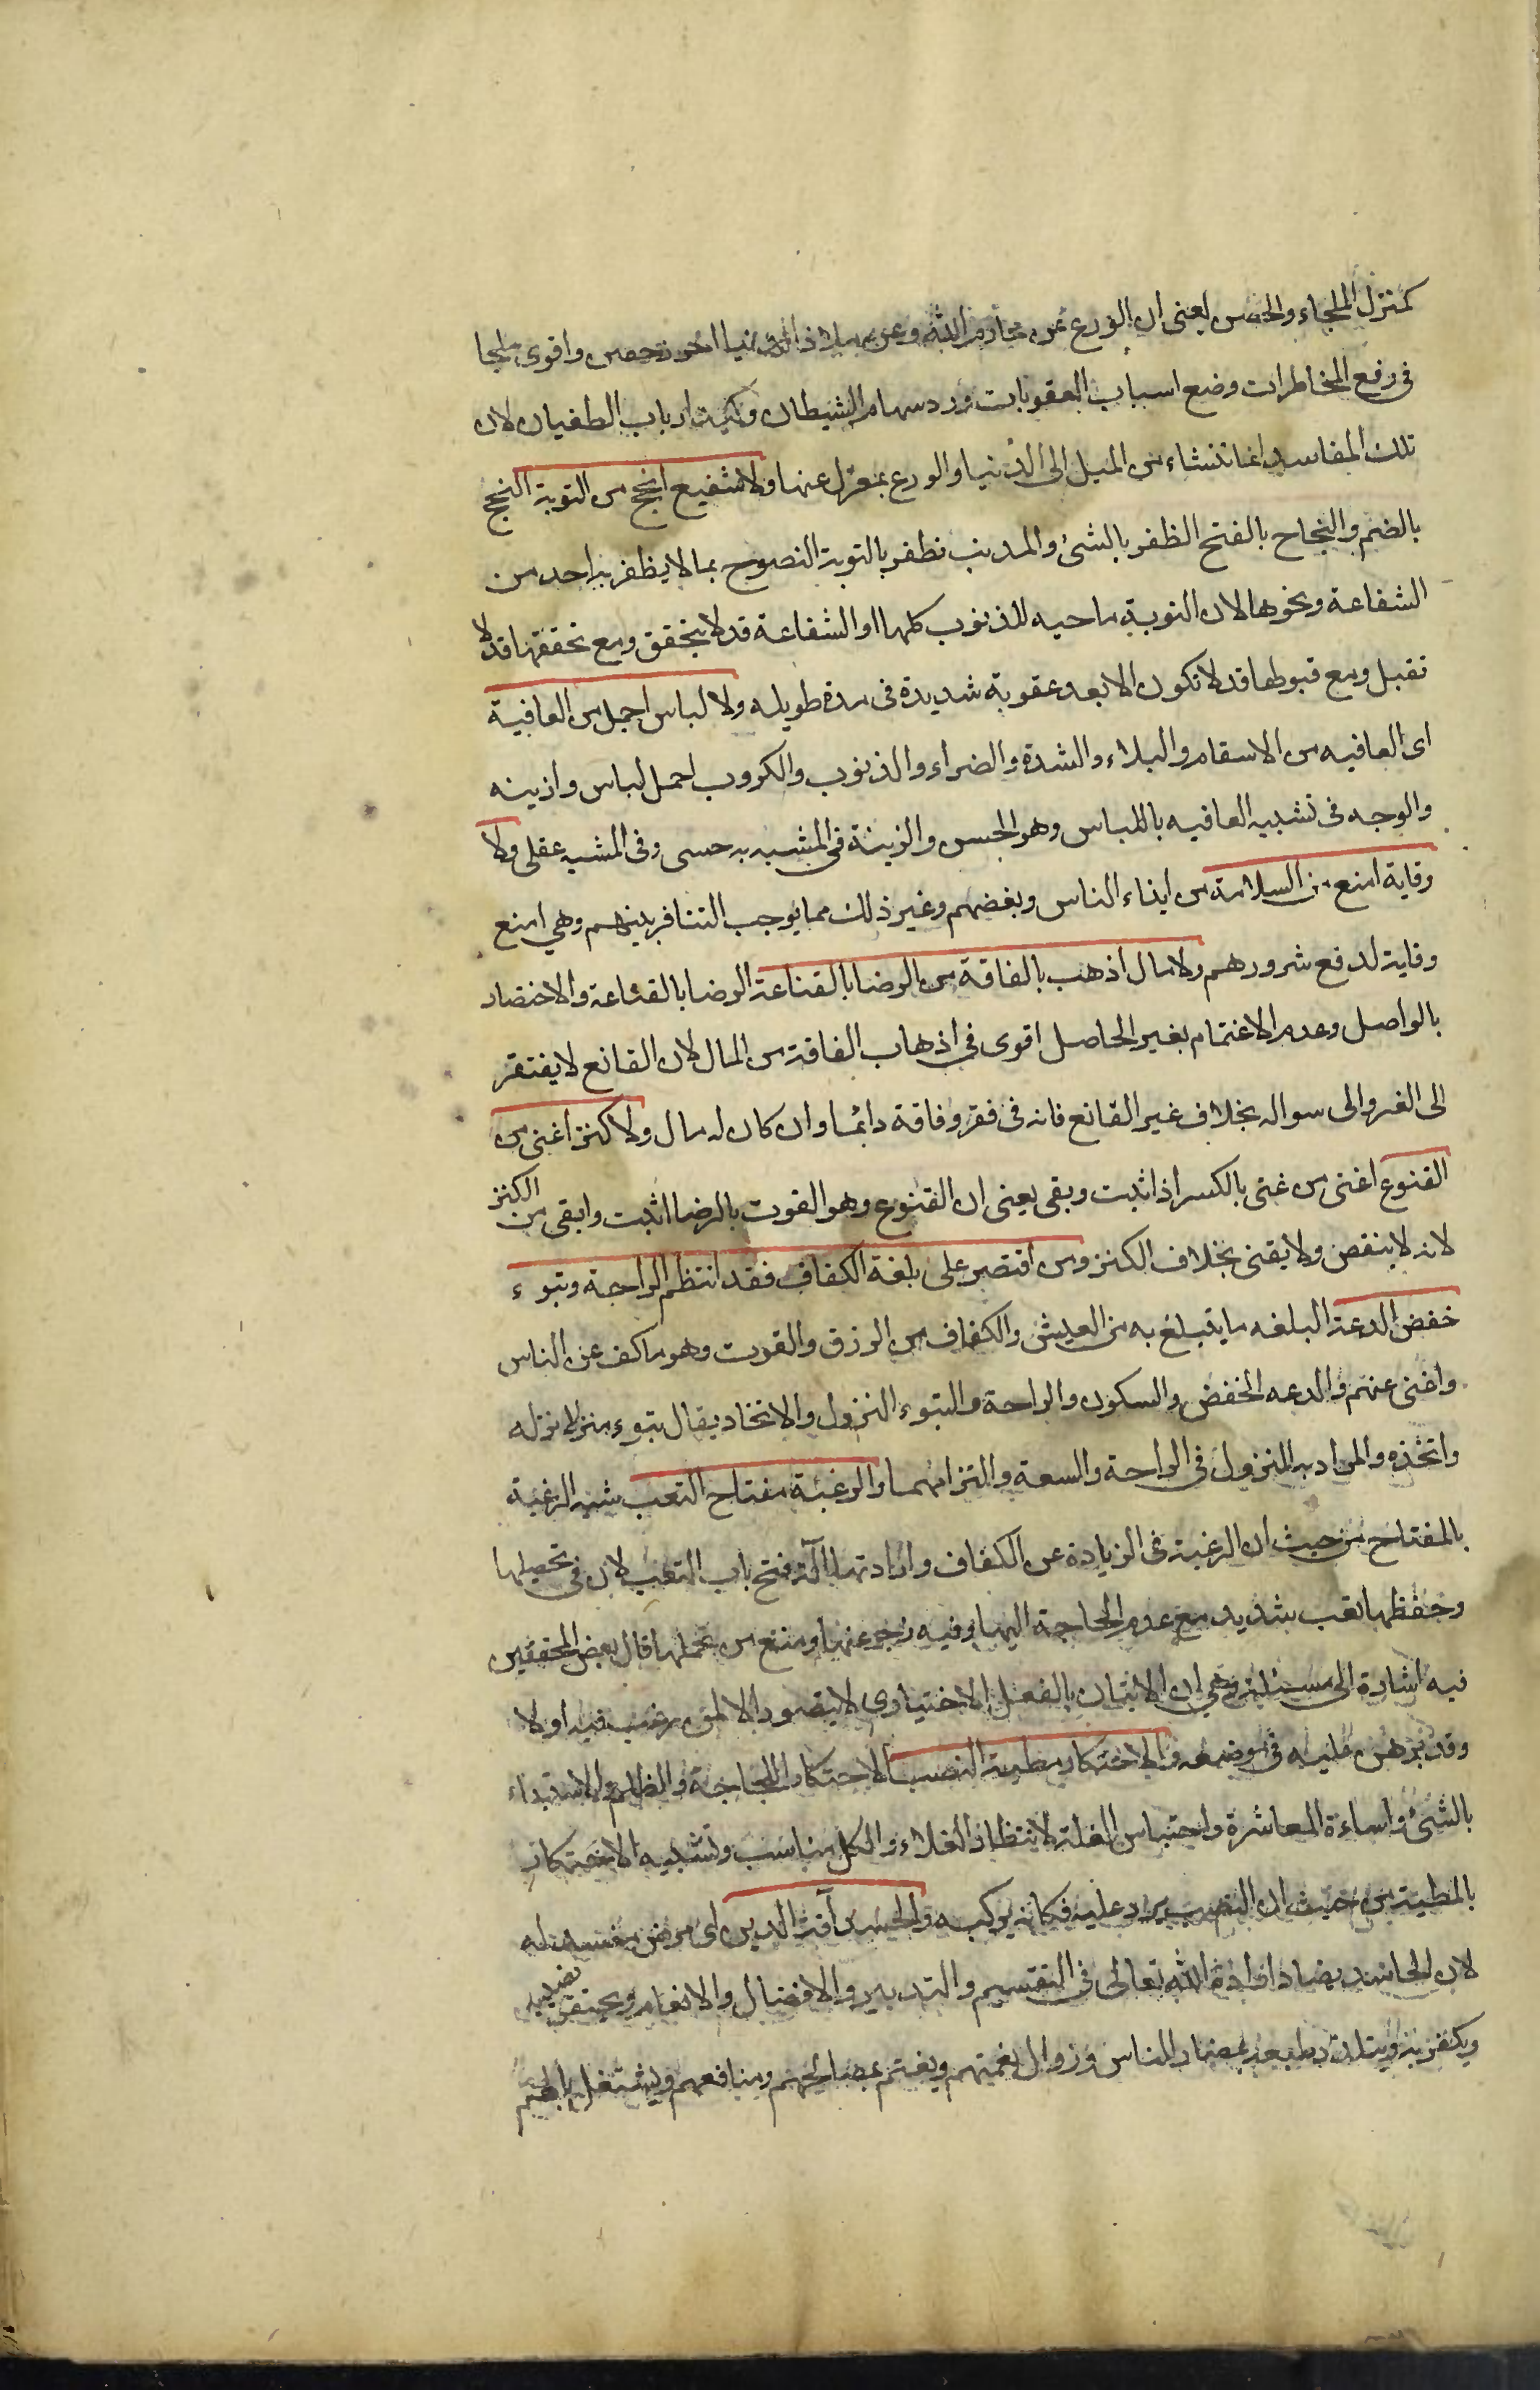 كمنزل الملجاء والحصن يعنى ان الورع عن محارم الله وعن ملاذ الدنيا احرز حصن واقوى ملجا
فى رفع المخاطرات وضع اسباب العقوبات ورد سهام الشيطان وكيد ارباب الطغيان لان
تلك المفاسد انما تنشاء من الميل الى الدنيا والورع بمعزل عنها ولا شفيع انجح من التوبة النجح
بالضم والنجاح بالفتح الظفر بالشئ والمذنب نظفر بالتوبة النصوح بما لا يظفر به احد من
الشفاعة ونحوها لان التوبة ماحيه للذنوب كلها او الشفاعة قد لا يتحقق ومع تحققها قد لا
تقبل ومع قبولها قد لا تكون الا بعد عقوبة شديدة فى مدة طويله ولا لباس اجمل من العافية
اى العافيه من الاسقام والبلاء والشدة والضراء والذنوب والكروب اجمل لباس وازينه
والوجه فى تشبيه العافيه باللباس وهو الحسن والزينة فى المشبه به حسى وفى المشبه عقلى ولا
وقاية امنع من السلامة من ايذاء الناس وبغضهم وغير ذلك مما يوجب التنافر بينهم وهي امنع
وقاية لدفع شرورهم ولا مال اذهب بالفاقة من الرضا بالقناعة الرضا بالقناعة والاختصار
بالواصل وعدم الاغتمام بغير الحاصل اقوى في اذهاب الفاقة من المال لان القانع لا يفتقر
الى الغير والى سواله بخلاف غير القانع فانه فى فقر وفاقة دائما وان كان له مال ولا كنز اغنى من
القنوع اغنى من غنى بالكسر اذا ثبت وبقى يعنى ان القنوع وهو القوت بالرضا اثبت وابقى من الكنز
لانه لا ينقص ولا يفنى بخلاف الكنز ومن اقتصر على بلغة الكفاف فقد انتظم الراحة وتبوء
خفض الدعة البلغه ما يتبلغ به من العيش والكفاف من الرزق والقوت وهو ما كف عن الناس
واغنى عنهم والدعه الخفض والسكون والراحة والتبوء النزول والاتخاد يقال تبوء منزلا نزله
واتخذه والمراد به النزول فى الراحة والسعة والتزامهما والرغبة مفتاح التعب شبه الرغبة
بالمفتاح من حيث ان الرغبة فى الزيادة عن الكفاف وارادتها آلة فتح باب التعب لان فى تحصيلها
وحفظها تعب شديد مع عدم الحاجة اليها وفيه زجر عنها ومنع من تحملها قال بعض المحققين
فيه اشارة الى مسئلة وهي ان الاتيان بالفعل الاختياري لا يتصور الا لمن رغب فيه اولا
وقد برهن عليه فى موضعه والاحتكار مطية النصب الاحتكار اللجاجة والظلم والاستبداء
بالشئ واساءة المعاشرة واحتباس الغلة لانتظار الغلاء والكل مناسب وتشبيه الاحتكار
بالمطية من حيث ان النصب يرد عليه فكانه يركبه والحسد آفة الدين اى مرض مفسد له
لان الحاسد يضاد ارادة الله تعالى فى التقسيم والتدبير والافضال والانعام ويحتقر نصيبه
ويكفر به ويتلذذ طبعه بمضار الناس وزوال نعمتهم ويغتم بمصالحهم ومنافعهم ويشتغل